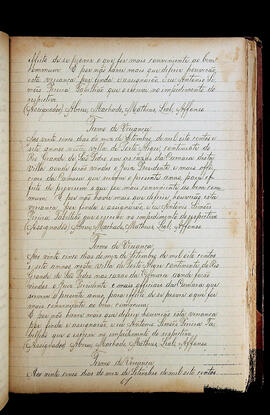 effeito de se prover o que for mais conveniente ao bem
commum. E por não haver mais que deferir houverão
esta vereança por finda e assignarão, eu Antonio Si-
mões Pereira Tabellião que o escrevi no impedimento do
respectivo.
(Assignados) Abreu, Machado, Matheus, Leal, Affonso
Termo de Vereança
Aos vinte cinco dias do mez de Setembro de mil oito centos
e sete annos nesta villa de Porto Alegre continente do
Rio Grande de São Pedro em as cazas da Camara desta
Villa aonde forão vindos o Juiz Presidente e mais offi-
ciaes da Camara que servem o presente anno para ef-
feito de proverem o que for mais conveniente ao bem com-
mum. E por não haver mais que deferir houverão esta
vereança por finda e assignarão, eu Antonio Simões
Pereira Tabellião que o escrevi no impedimento do respectivo
(Assignados) Abreu, Machado, Matheus, Leal, Affonso
Termo de Vereança
Aos vinte sete dias do mez de Setembro de mil oito centos
e sete annos nesta villa de Porto Alegre continente do Rio
Grande de São Pedro nas cazas da Camara aonde forão
vindos o Juiz Presidente e mais officiaes da Camara que
servem o presente anno, para effeito de proverem o que for
mais conveniente ao bem commum.
E por não haver mais que deferir houverão esta vereança
por finda e assignarão, eu Antonio Simões Pereira Ta-
bellião que o escrevi no impedimento do respectivo.
(Assignados) Abreu, Machado, Matheus, Leal, Affonso
Termo de Vereança
Aos vinte cinco dias do mez de Setembro de mil oito centos